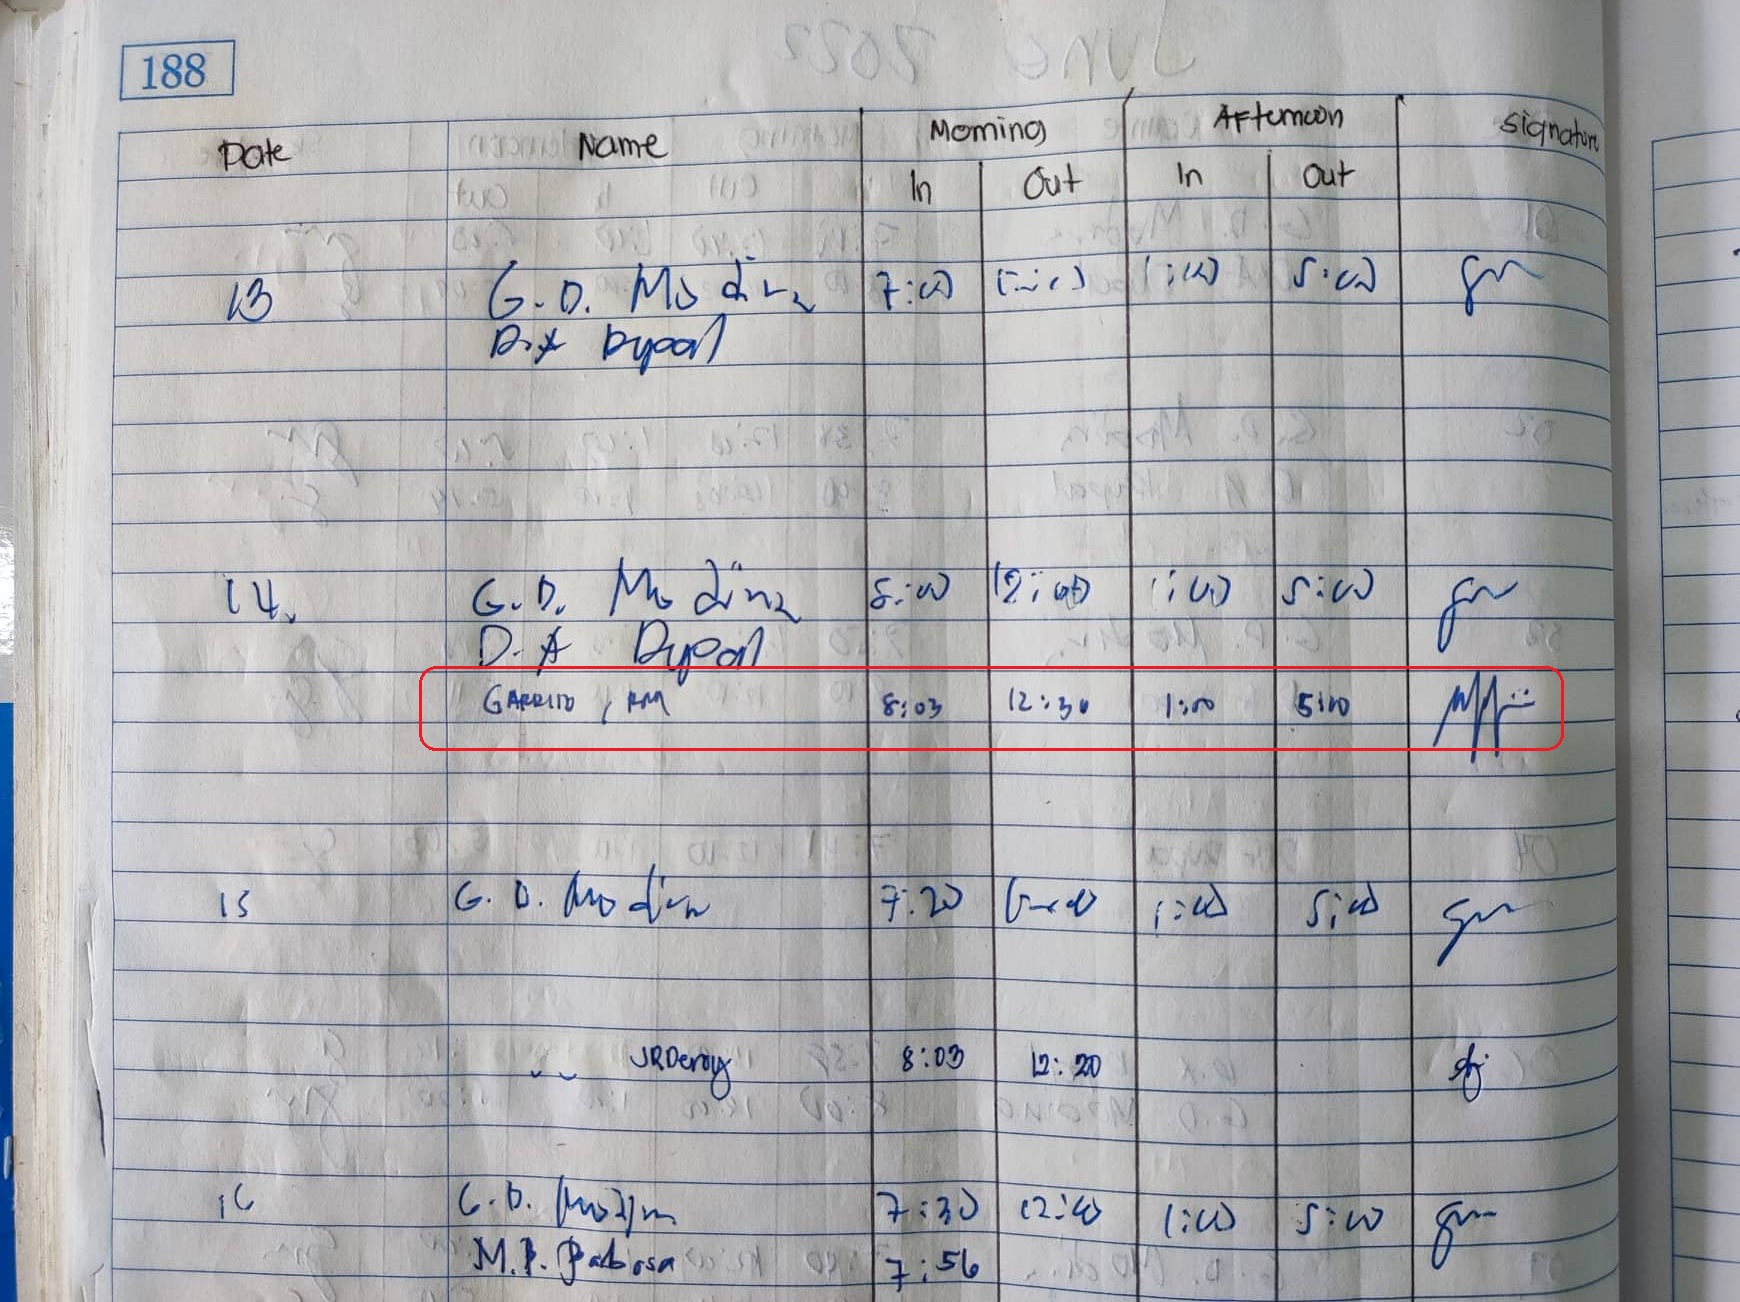 188
Date Name Morning Afternoon Signature
In Out In Out
13 G. D. Modina 7:00 1:00 5:00
D.A Dypal
14. G. D. Modina 8:00 12:00 1:00 5:00
D. A Dypal
GARRITO, RM 8:03 12:30 1:00 5:10
15 G. D. Modina 7:20 1:00 5:00
JRDeroy 8:03 12:20
16 G. D. Modina 7:30 12:00 1:00 5:00
M.P. Barbosa 7:56